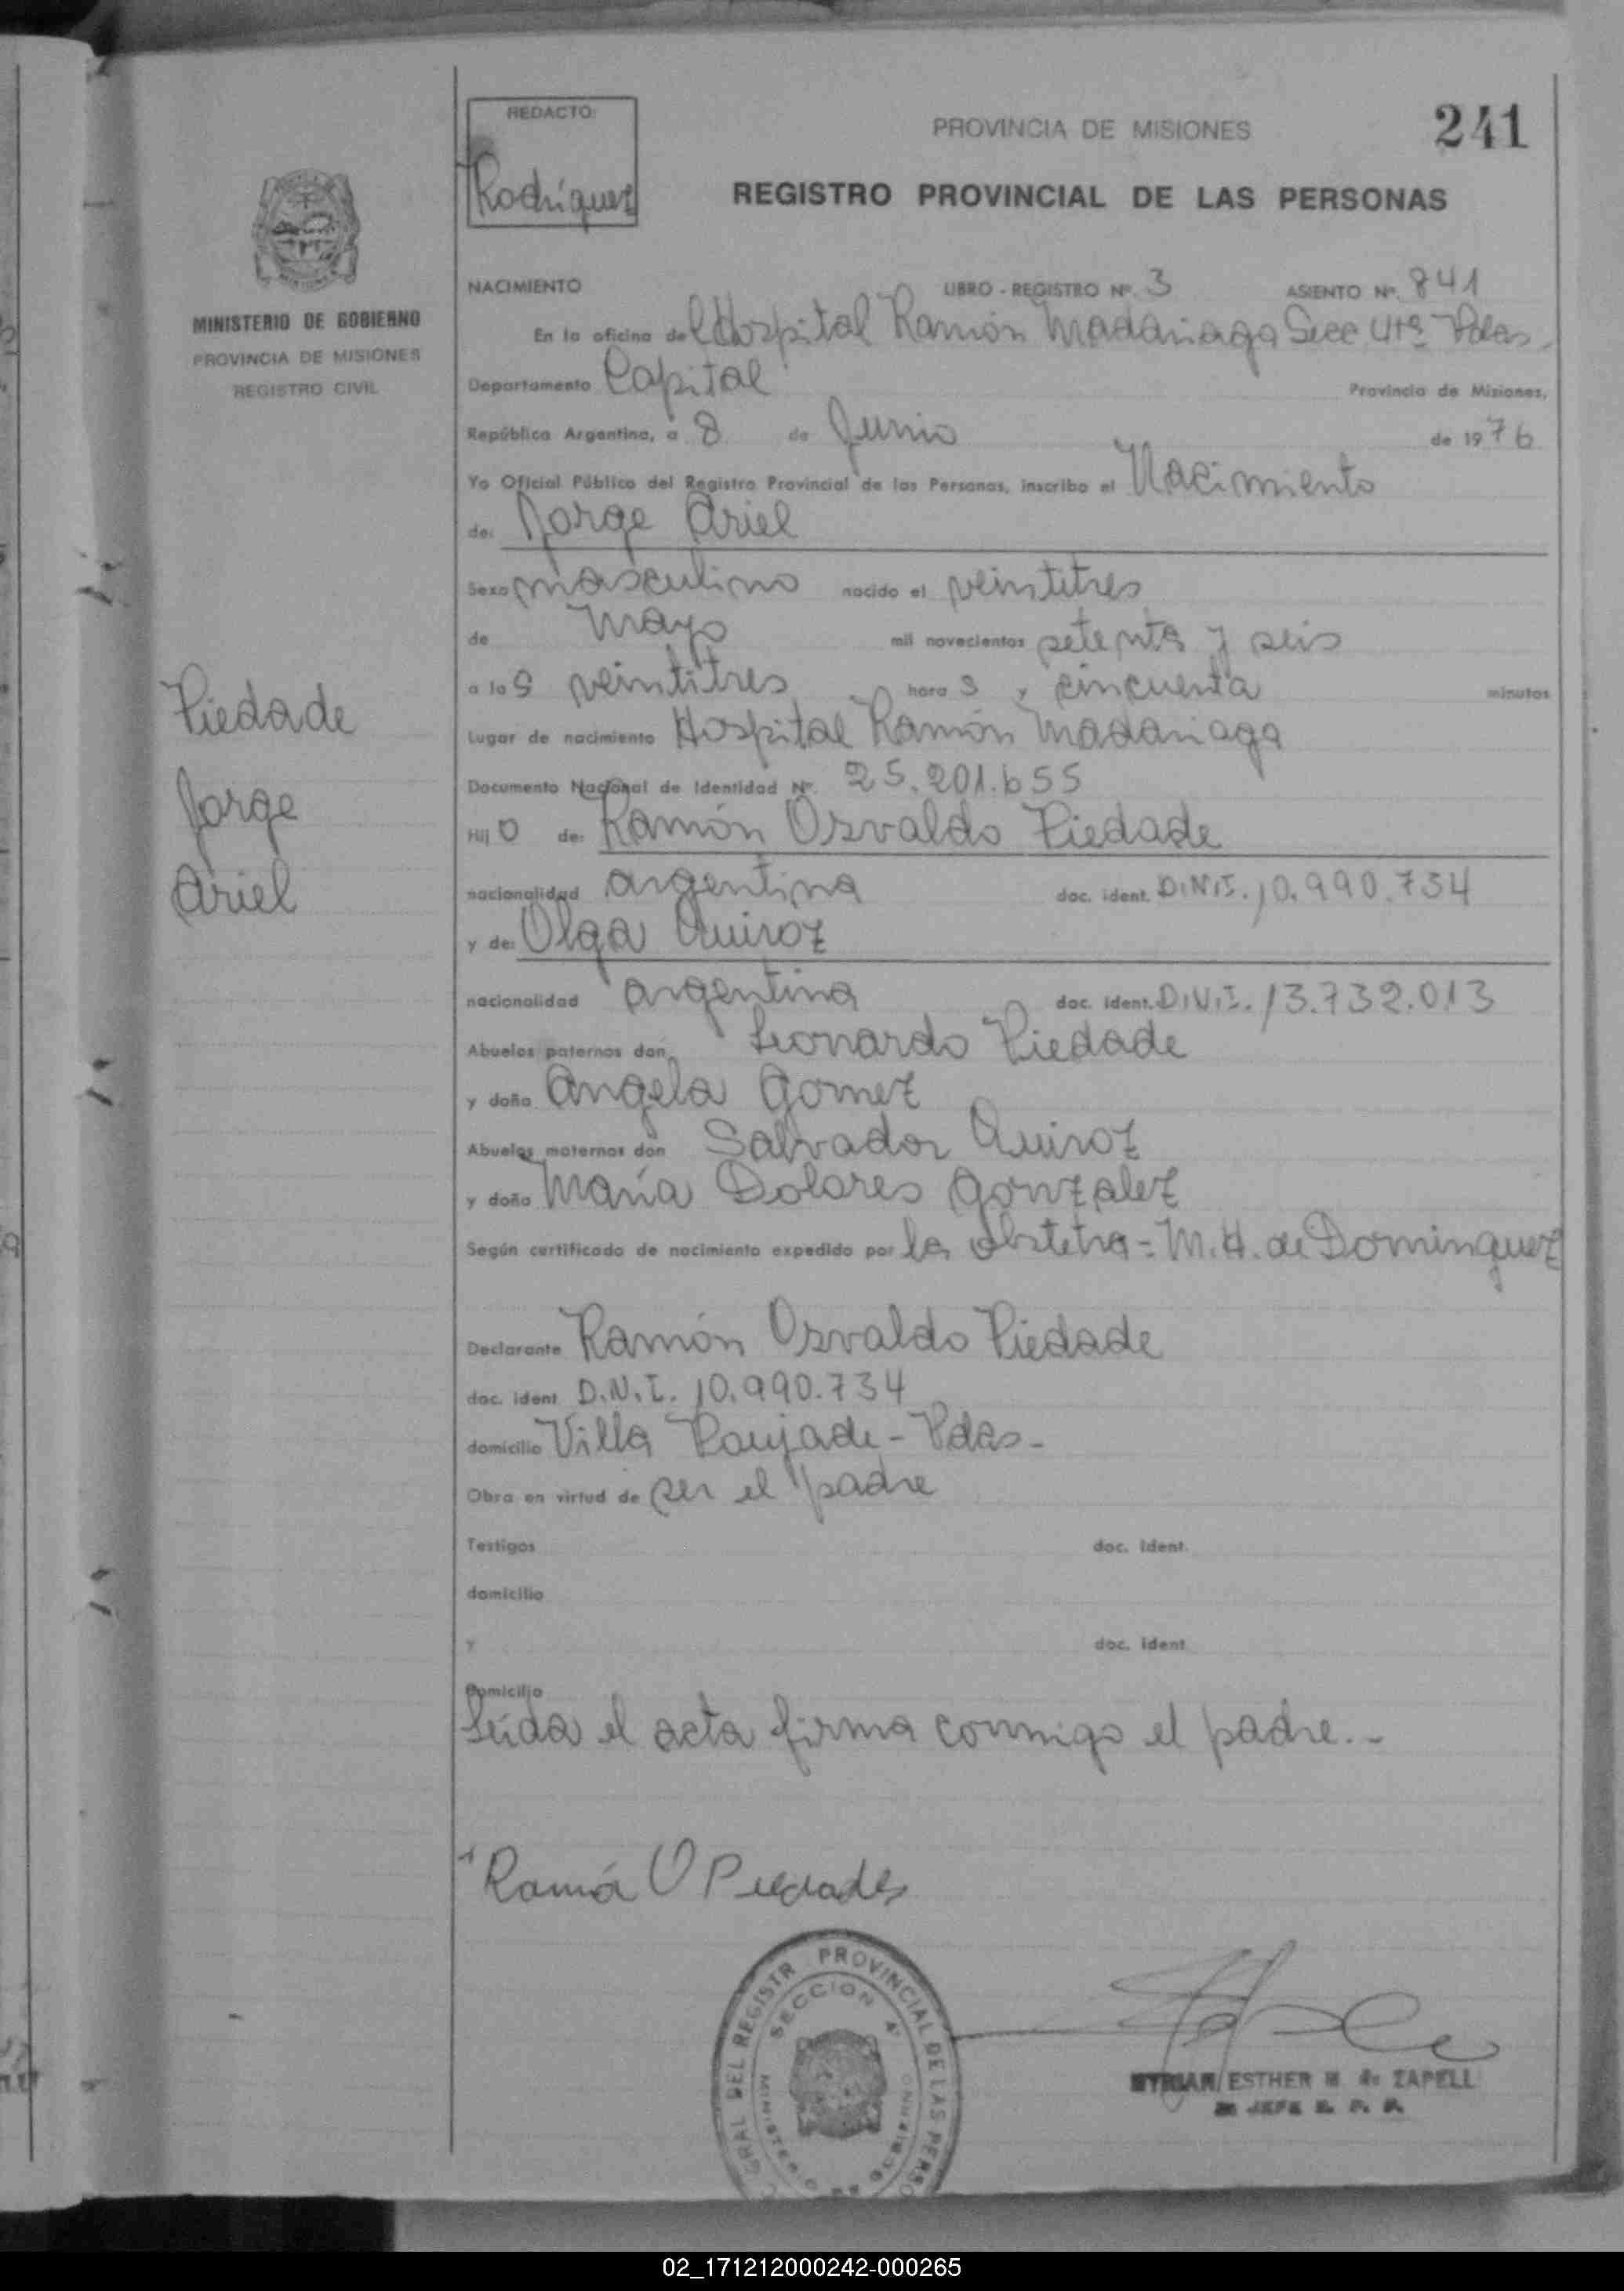 REDACTO:
Rodríguez
PROVINCIA DE MISIONES
241
REGISTRO PROVINCIAL DE LAS PERSONAS
MINISTERIO DE GOBIERNO
PROVINCIA DE MISIONES
REGISTRO CIVIL
NACIMIENTO LIBRO - REGISTRO Nº. 3 ASIENTO Nº. 841
En la oficina del Hospital Ramón Madariaga Secc 4ta Pdas.
Departamento Capital Provincia de Misiones,
República Argentina, a 8 de Junio de 1976
Yo Oficial Público del Registro Provincial de las Personas, inscribo el Nacimiento
de: Jorge Ariel
Sexo masculino nacido el veintitres
de Mayo mil novecientos setenta y seis
a las veintitres horas y cincuenta minutos
Lugar de nacimiento Hospital Ramón Madariaga
Documento Nacional de Identidad Nº. 25.201.655
Hijo de: Ramón Osvaldo Piedade
nacionalidad argentina doc. ident. D.N.I. 10.990.734
y de: Olga Quiroz
nacionalidad argentina doc. ident. D.N.I. 13.732.013
Abuelos paternos don Leonardo Piedade
y doña Angela Gomez
Abuelos maternos don Salvador Quiroz
y doña María Dolores Gonzalez
Según certificado de nacimiento expedido por la obstetra - M.H. de Dominguez
Declarante Ramón Osvaldo Piedade
doc. ident D.N.I. 10.990.734
domicilio Villa Poujade - Pdas -
Obra en virtud de ser el padre
Testigos doc. ident.
domicilio
y doc. ident
Domicilio
Leida el acta firma conmigo el padre.-
Piedade
Jorge
Ariel
Ramó O Piedade
GRAL DEL REGISTR PROVINCIAL DE LAS PERSO
SECCION 4ª
MINISTERIO DE GOBIERNO
MYRIAN ESTHER M de ZAPELL
JEFE R. P. P.
02_171212000242-000265